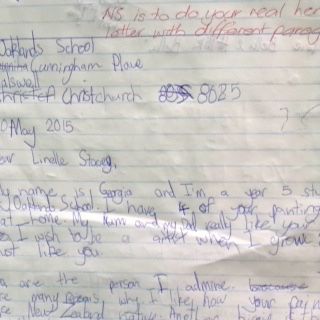 NS is to do your real her
letter with different parag
Oaklands School
Cunningham Place
Halswell
Christchurch 8025
May 2015
ear Linelle Stacey,
y name is Georgia and I'm a year 5 stu
Oaklands School. I have 4 of your painting
at home. My Mum and my Dad really like your
I wish to be a artist when I grow
ust like you.
are the person I admire.
re many reasons why I like how your pain
re New Zealand nature. Anoth